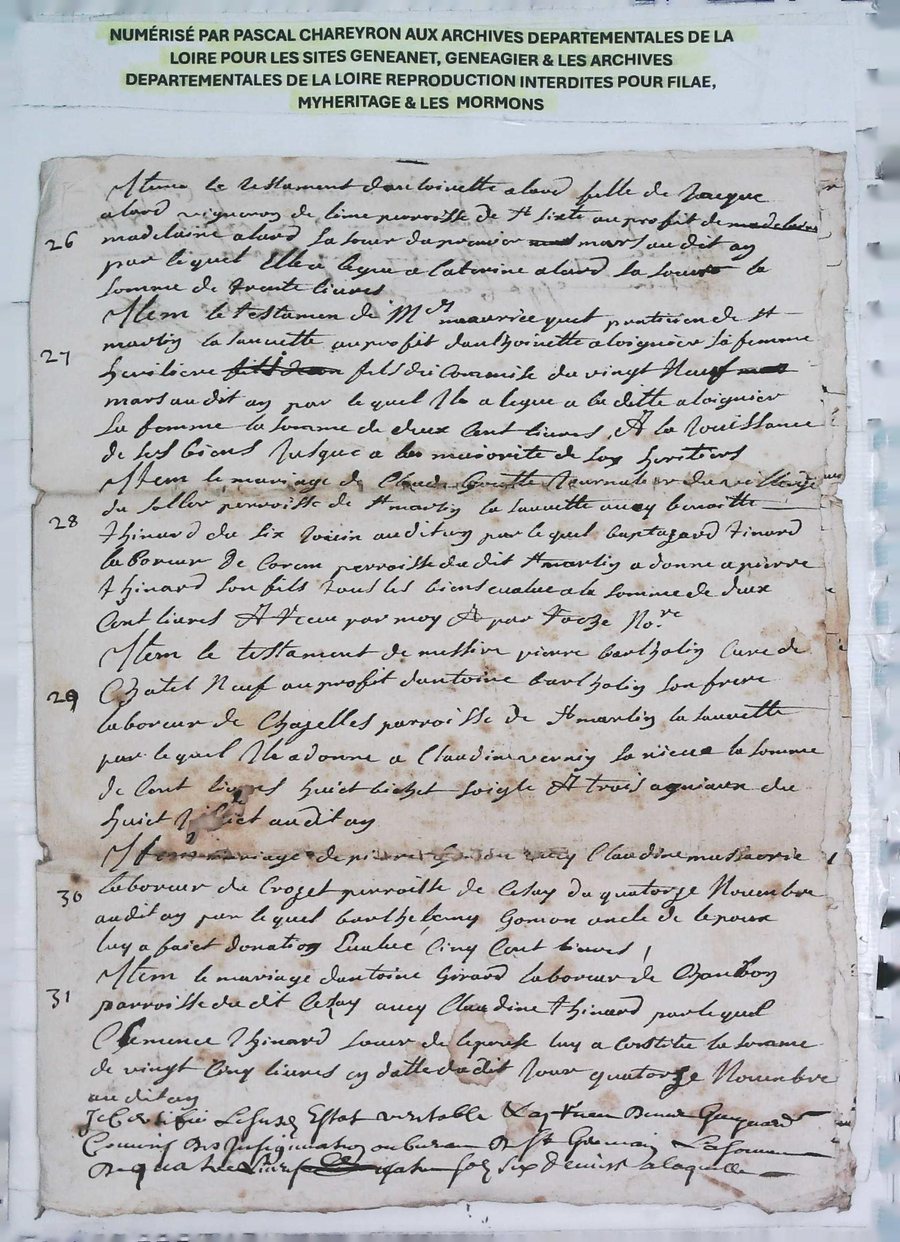 NUMÉRISÉ PAR PASCAL CHAREYRON AUX ARCHIVES DEPARTEMENTALES DE LA
LOIRE POUR LES SITES GENEANET, GENEAGIER & LES ARCHIVES
DEPARTEMENTALES DE LA LOIRE REPRODUCTION INTERDITES POUR FILAE,
MYHERITAGE & LES MORMONS
Item le testament dantoinette alard fille de Jacque
alard vigneron de parroisse de St Sixte au profit de madelaine
26 madelaine alard sa soeur du premier mars audit an
par lequel Elle a legue a Caterine alard sa soeur la
somme de trente livres
Item le testamen de Me maurice praticien de St
27 martin la sauvette au profit danthoinette aloignier sa femme
heritiere fils du Commise du vingt neuf
mars audit an par lequel Il a legue a la ditte aloignier
sa femme la somme de deux cent livres Et la Jouissance
de ses biens Jusque a la majorite de ses heritiers
Item le mariage de Claude Journalier du village
28 du Soller parroisse de St martin la sauvette avecq benoitte
thinard du six Juin audit an par lequel tinard
laboreur de parroisse dudit St martin a donne a pierre
thinard son fils tous ses biens evalue a la somme de deux
Cent livres Et receu par moy Et par No.re
Item le testament de messire pierre barthelin Cure de
29 Chatel Neuf au profit dantoine barthelin son frere
laboreur de Chazelles parroisse de St martin la sauvette
par lequel Il a donne a Claudine sa niece la somme
de Cent livres huict bichet soigle Et trois agniaux du
huict audit an
Item mariage de pierre avecq Claudine
30 laboreur du Crozet parroisse de Cezay du quatorze Novembre
audit an par lequel barthelemy Gomon oncle de lepoux
luy a faict donation Evalué Cinq Cent livres
Item le mariage dantoine Girard laboreur de Chanbon
31 parroisse du dit Cezay avecq Claudine thinard par lequel
Clemence thinard soeur de lepouse luy a Costitue la somme
de vingt Cinq livres en datte dudit Jour quatorze Novembre
audit an
Je Certifie Lesusd Estat veritable
Commis Des Insignuations au bureau De St Germain La somme
De quatre Livres quatre sols six deniers Laquelle